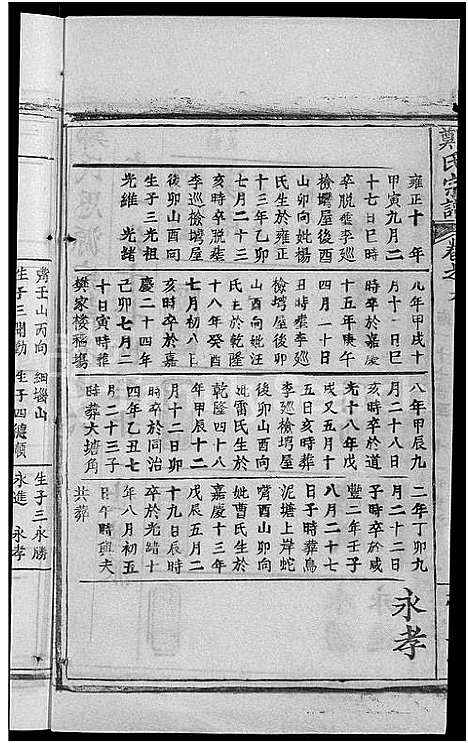 鄭氏宗譜
卷之
雍正十年
甲寅九月二
十七日巳時
卒脱塵李廵
檢塆屋後酉
山卯向妣楊
氏生於雍正
十三年乙卯
七月二十三
亥時卒脱塵
李廵檢塆屋
後卯山酉向
生子三光祖
光維 光緒
九年甲戌十
月十一日巳
時卒於嘉慶
十五年庚午
四月一十日
丑時葬李廵
檢塆屋後卯
山酉向妣汪
氏生於乾隆
十八年癸酉
七月初八日
亥時卒於嘉
慶二十四年
己卯七月二
十日寅時葬
樊家楼稲塲
八年甲辰九
月二十八日
亥時卒於道
光十八年戊
戌又五月十
五日亥時葬
李廵檢塆屋
妣雷氏生於
乾隆四十九
年甲辰十二
月十二日卯
時卒於同治
四年乙丑七
月二十三子
時葬大塘角
二年丁卯九
月二十二日
子時卒於咸
豐二年壬子
八月二十七
日子時葬鳥
泥塘上岸蛇
嘴酉山卯向
妣曹氏生於
嘉慶十三年
戊辰五月二
十九日辰時
卒於光緒十
年八月初五
日午時與夫
共葬
永孝
嘴壬山丙向
生子三開勤
細塆山
生子四德順
生子三永勝
永進 永孝